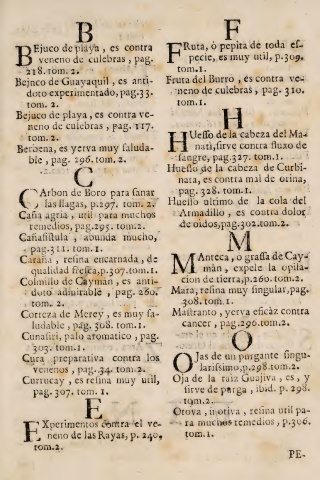 B
BEjuco de playa, es contra
veneno de culebras, pag.
218. tom. 2.
Bejnco de Guayaquil, es anti-
doto experimentado, pag. 33.
tom. 2.
Bejuco de playa, es contra ve-
neno de culebras, pag. 117.
tom. 2.
Berbena, es yerva muy saluda-
ble, pag. 296. tom. 2.
C
CArbon de Boro para sanar
las llagas, p.297. tom. 2.
Caña agria, util para muchos
remedios, pag.295. tom.2.
Cañafistula, abunda mucho,
pag.311. tom.1.
Caraña, resina encarnada, de
qualidad fresca, p.307. tom.1.
Colmillo de Cayman, es anti-
doto admirable, pag. 260.
tom. 2.
Corteza de Merey, es muy sa-
ludable, pag. 308. tom.1.
Cunasiri, palo aromatico, pag.
303. tom.1.
Cura preparativa contra los
venenos, pag.34. tom.2.
Currucay, es resina muy util,
pag. 307. tom. 1.
E
EXperimentos contra el ve-
neno de las Rayas, p. 240.
tom.2.
F
FRuta, ò pepita de toda es-
pecie, es muy util, p.309.
tom.1.
Fruta del Burro, es contra ve-
neno de culebras, pag. 310.
tom.1.
H
HUesso de la cabeza del Ma-
nati, sirve contra fluxo de
sangre, pag.327. tom.1.
Huesso de la cabeza de Curbi-
nata, es contra mal de orina,
pag. 328. tom.1.
Huesso ultimo de la cola del
Armadillo, es contra dolor
de oidos, pag.302.tom.2.
M
MAnteca, ò grassa de Cay-
màn, expele la opila-
cion de tierra, p.260. tom.2.
Mara, resina muy singular, pag.
308. tom.1.
Mastranto, yerva eficàz contra
cancer, pag.296.tom.2.
O
OJas de un purgante singu-
larissimo, p.298.tom.2.
Oja de la raiz Guajiva, es, y
sirve de purga, ibid. p. 298.
tom.2.
Orova, ù otiva, resina util pa-
ra muchos remedios, p.306.
tom.1.
PE-